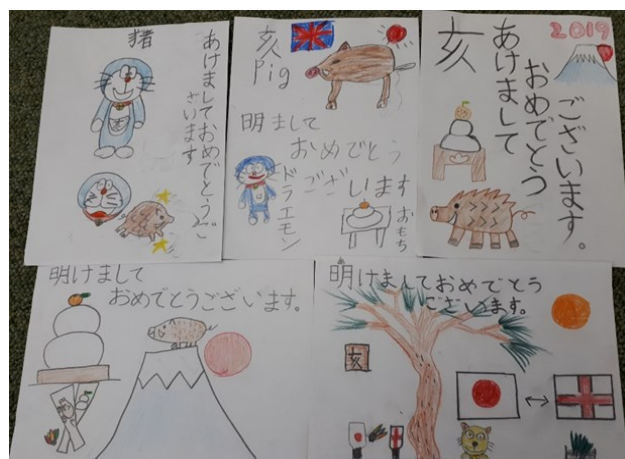 猪
あけましておめでとうご
ざいます
亥
Pig
明まして
おめでとう
ございます
ドラエモン
おもち
2019
亥
あけまして
おめでとう
ございます。
明けまして
おめでとうございます。
明けましておめでとう
ございます。
亥